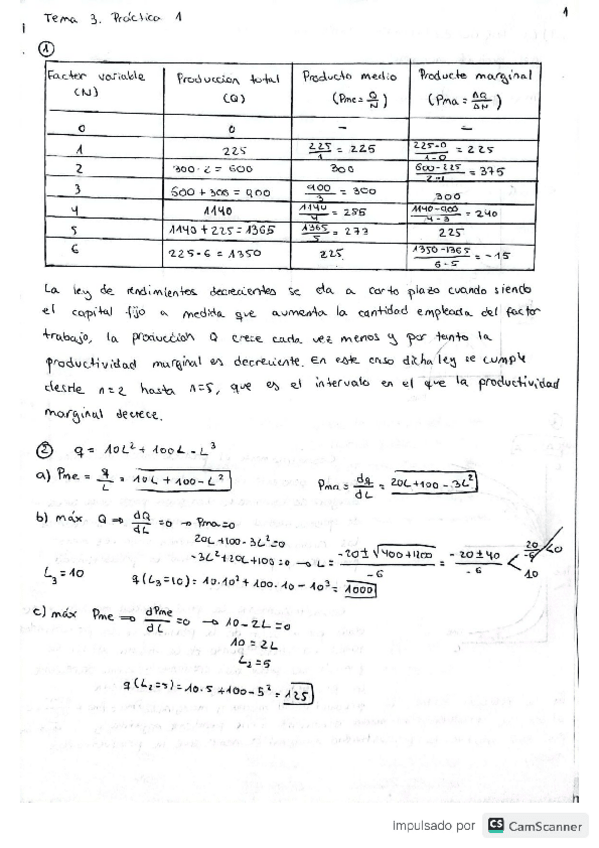 Tema 3. Práctica 1
1
①
Factor variable (N) | Produccion total (Q) | Producto medio (Pme = Q/N) | Producte marginal (Pma = ΔQ/ΔN)
0 | 0 | – | –
1 | 225 | 225/1 = 225 | 225-0/1-0 = 225
2 | 300·2 = 600 | 300 | 600-225/2-1 = 375
3 | 600 + 300 = 900 | 900/3 = 300 | 300
4 | 1140 | 1140/4 = 285 | 1140-900/4-3 = 240
5 | 1140 + 225 = 1365 | 1365/5 = 273 | 225
6 | 225·6 = 1350 | 225 | 1350-1365/6-5 = -15
La ley de rendimientos decrecientes se da a corto plazo cuando siendo
el capital fijo a medida que aumenta la cantidad empleada del factor
trabajo, la producción Q crece cada vez menos y por tanto la
productividad marginal es decreciente. En este caso dicha ley se cumple
desde n=2 hasta n=5, que es el intervalo en el que la productividad
marginal decrece.
② q = 10L² + 100L - L³
a) Pme = q/L = 10L + 100 - L² Pma = dq/dL = 20L + 100 - 3L²
b) máx Q ⇒ dQ/dL = 0 → Pma = 0
20L + 100 - 3L² = 0
-3L² + 20L + 100 = 0 → L = -20 ± √400 + 1200/-6 = -20 ± 40/-6 < 20/-6 < 0
10
L₃ = 10 q(L₃ = 10) = 10·10² + 100·10 - 10³ = 1000
c) máx Pme ⇒ dPme/dL = 0 → 10 - 2L = 0
10 = 2L
L₂ = 5
q(L₂ = 5) = 10·5 + 100 - 5² = 125
Impulsado por CS CamScanner